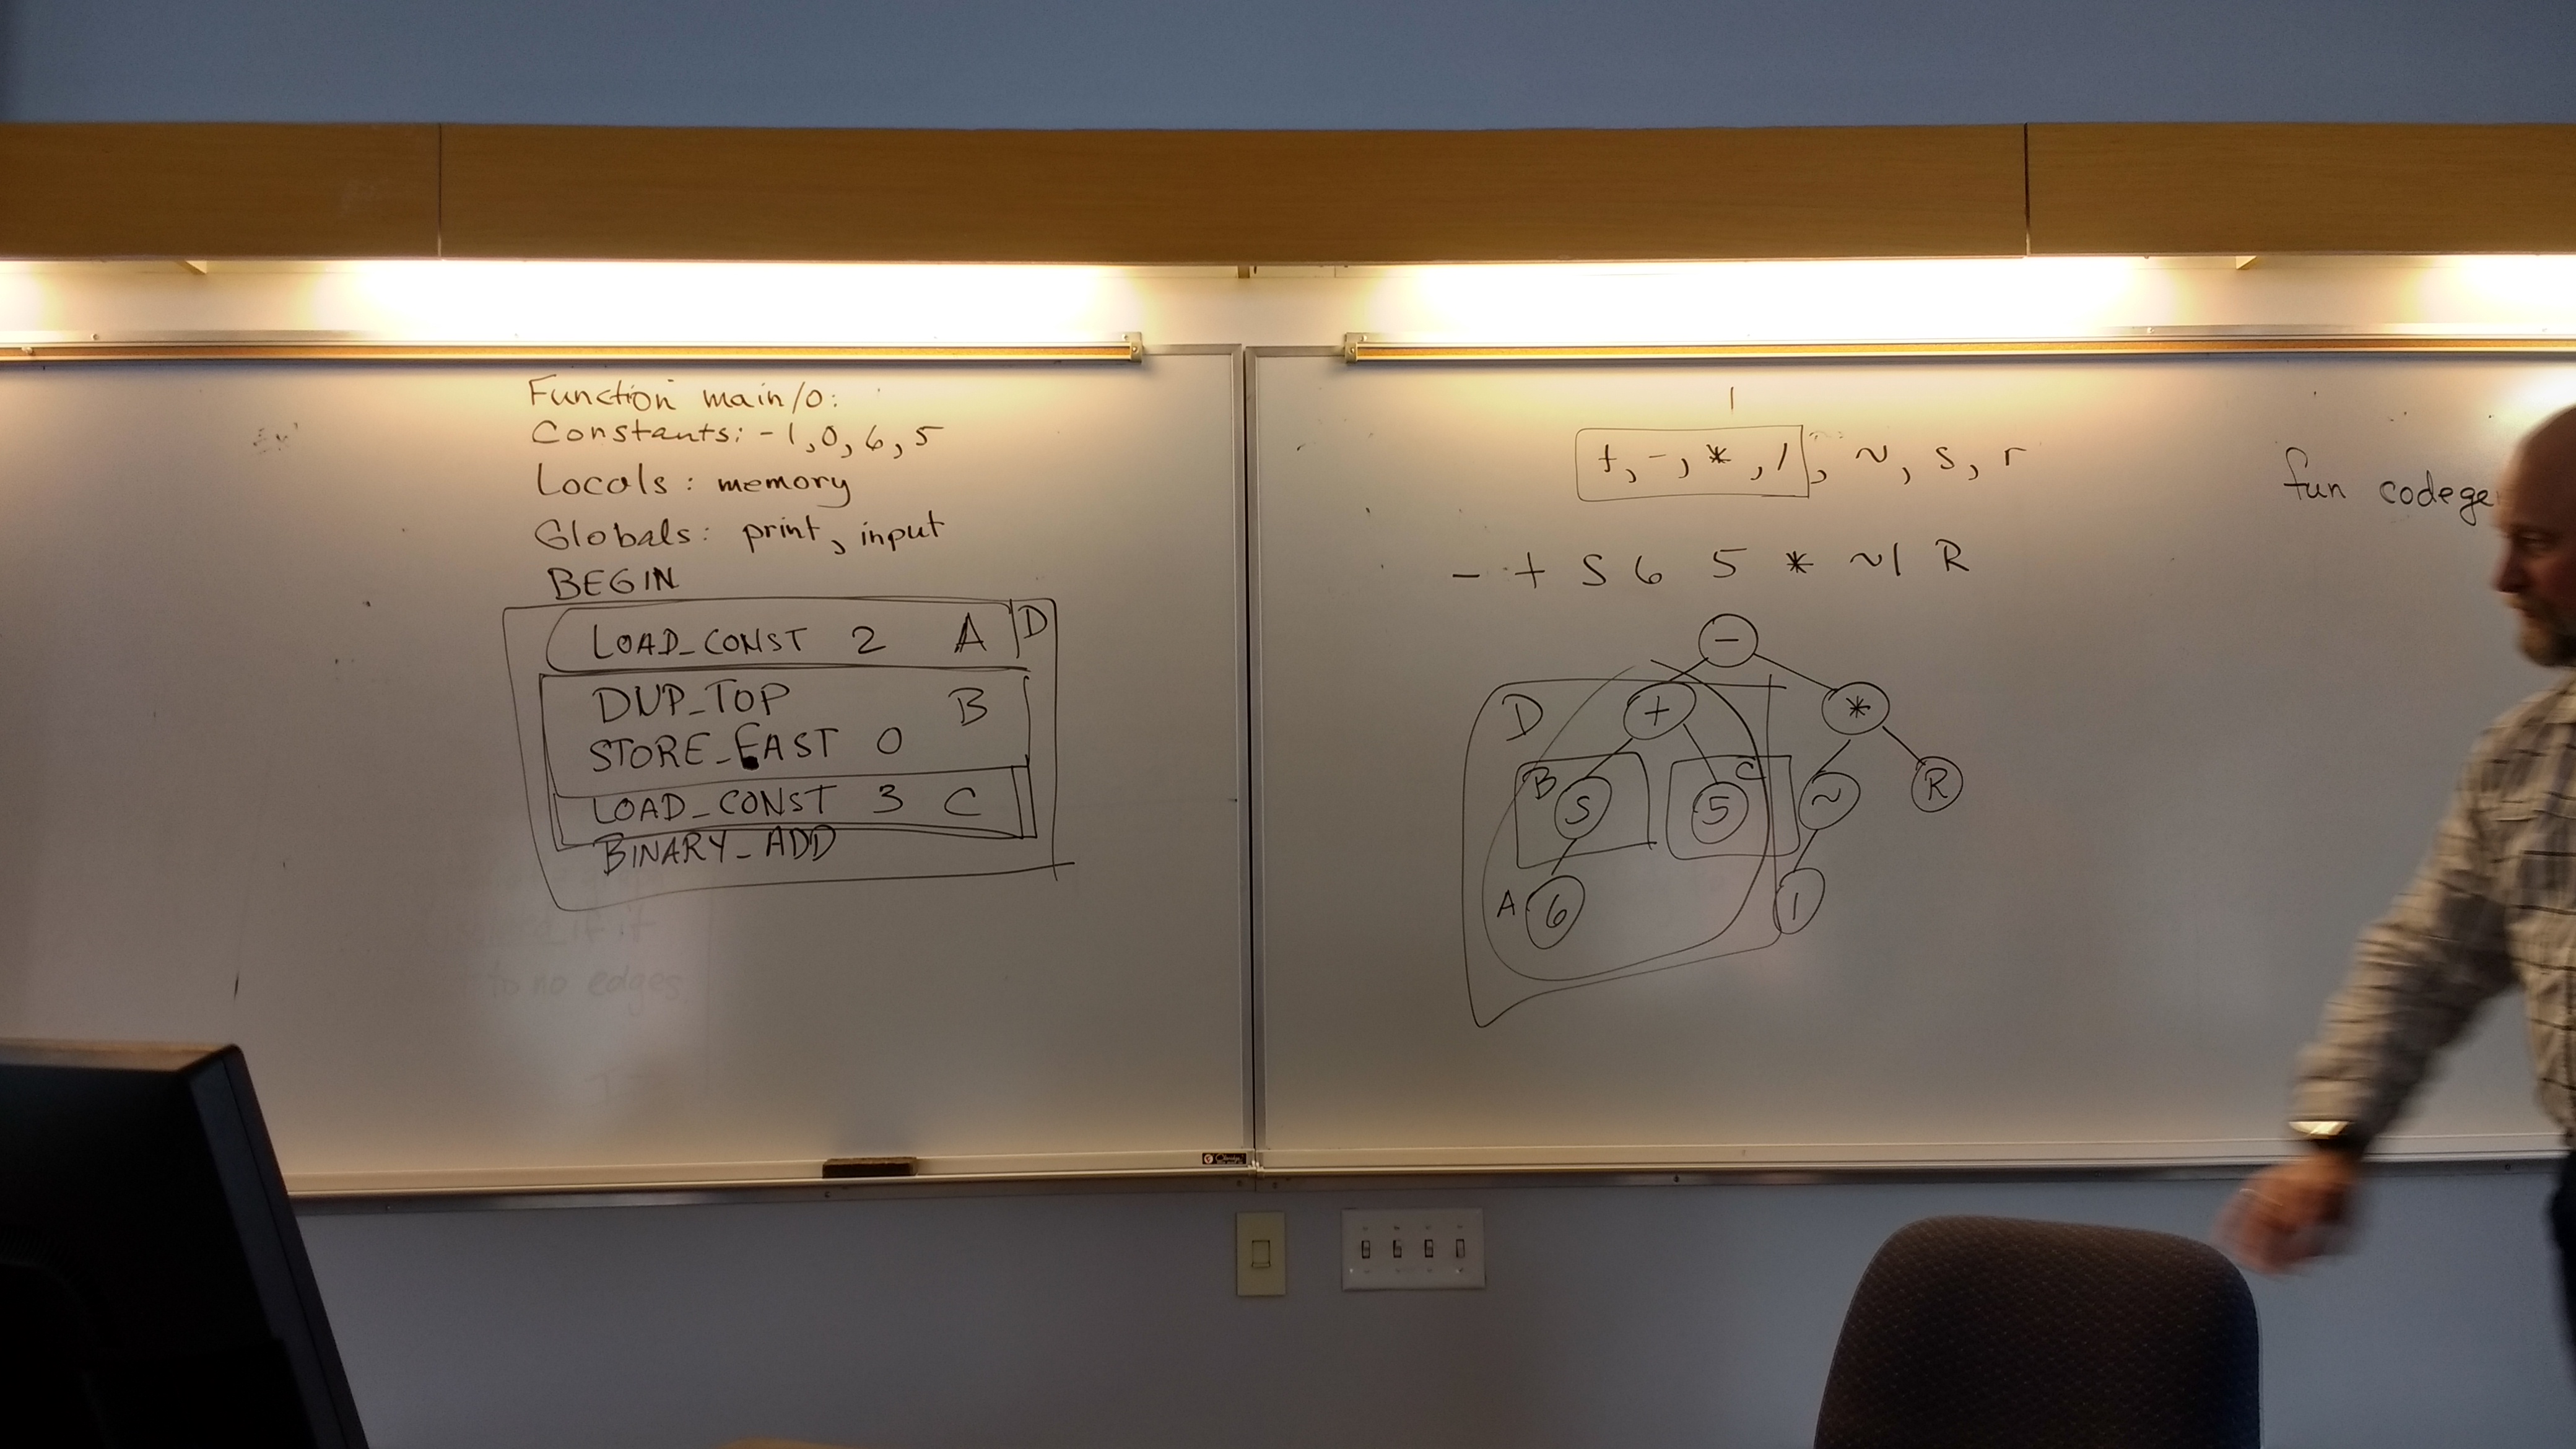 Function main/0:
Constants: -1, 0, 6, 5
Locals: memory
Globals: print, input
BEGIN
LOAD_CONST 2 A D
DUP_TOP B
STORE_FAST 0
LOAD_CONST 3 C
BINARY_ADD
to no edges
+, -, *, /, ~, s, r
- + S 6 5 * ~1 R
-
D + *
B S C 5 ~ R
A 6 1
fun codege